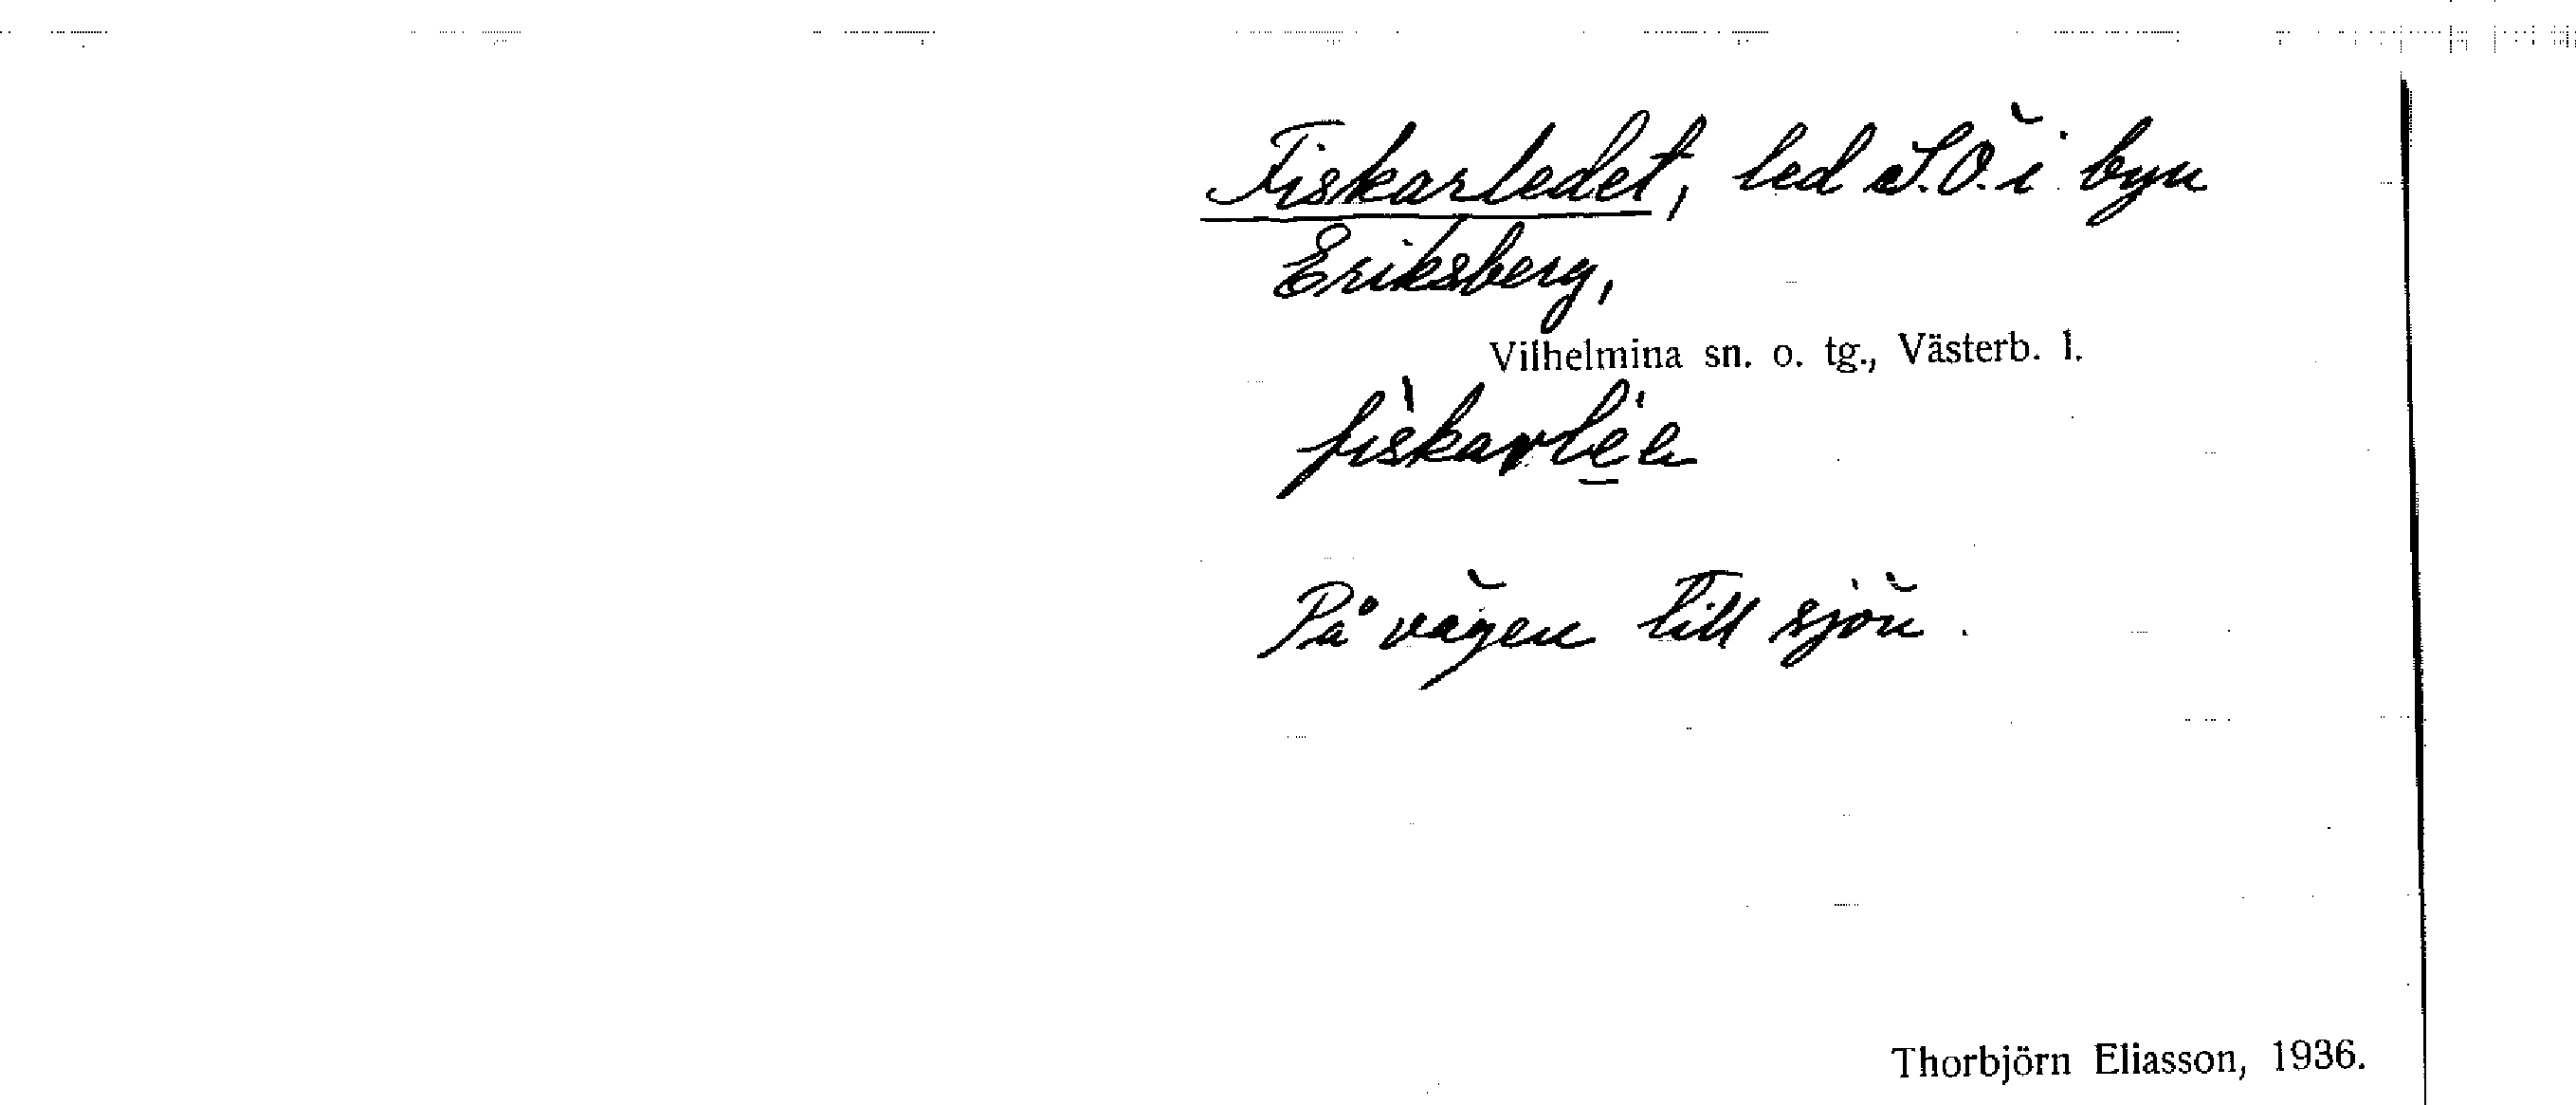 Fiskarledet, led S.Ö. i byn
Eriksberg,
Vilhelmina sn. o. tg., Västerb. l.
På vägen till sjön.
Thorbjörn Eliasson, 1936.